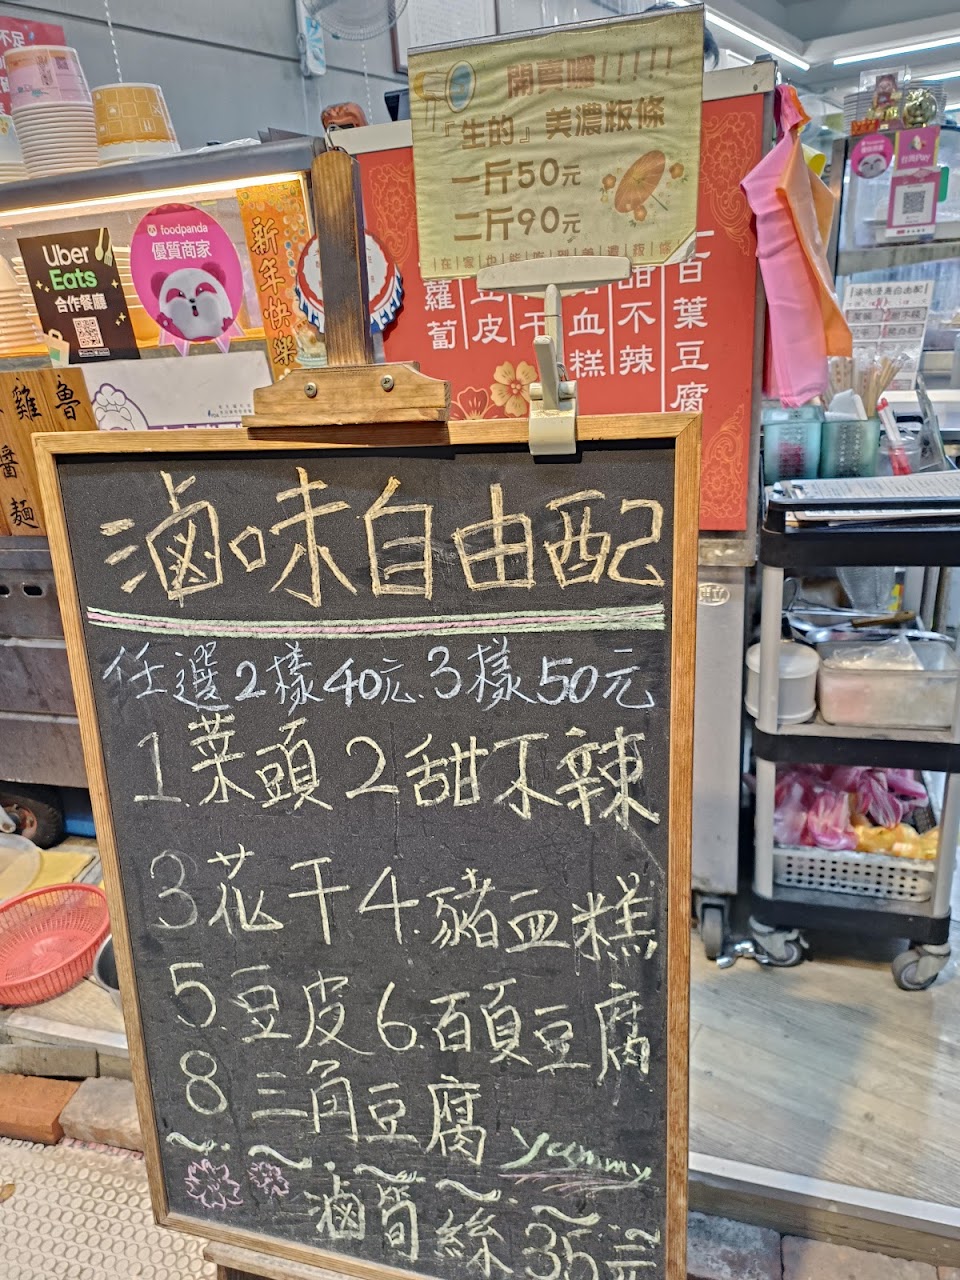 開賣囉!!!!!
『生的』美濃粄條
一斤50元
二斤90元
在家也能吃到美濃粄條
Uber
Eats
合作餐廳
foodpanda
優質商家
新年快樂
蘿蔔
豆皮
血糕
甜不辣
百葉豆腐
魯雞
醬麵
台灣Pay
滷味自由配
任選2樣40元.3樣50元
1.菜頭 2甜不辣
3花干4.豬血糕
5.豆皮6.百頁豆腐
8三角豆腐
yummy
滷筒絲35元